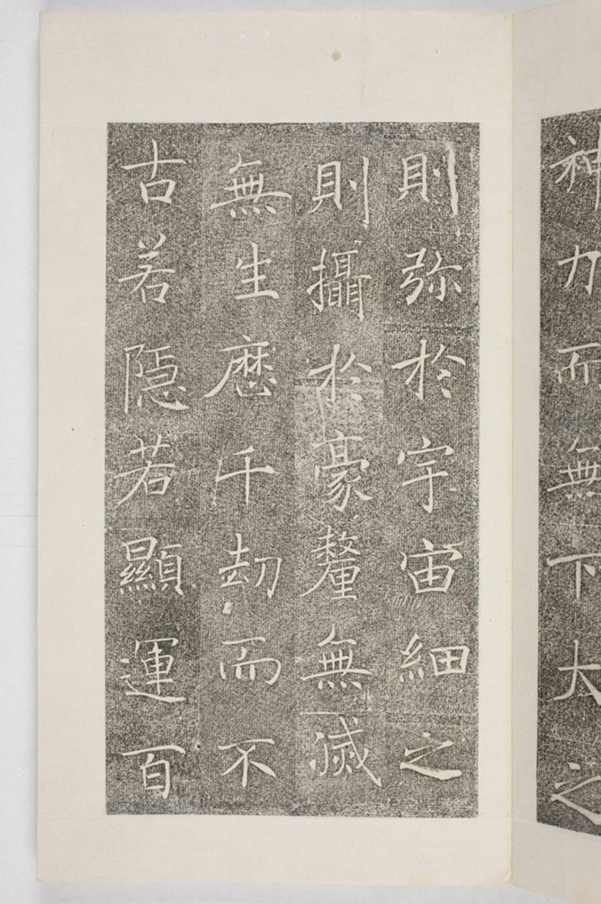 神力而無下大之
則弥於宇宙細之
則攝於豪釐無滅
無生歷千劫而不
古若隱若顯運百